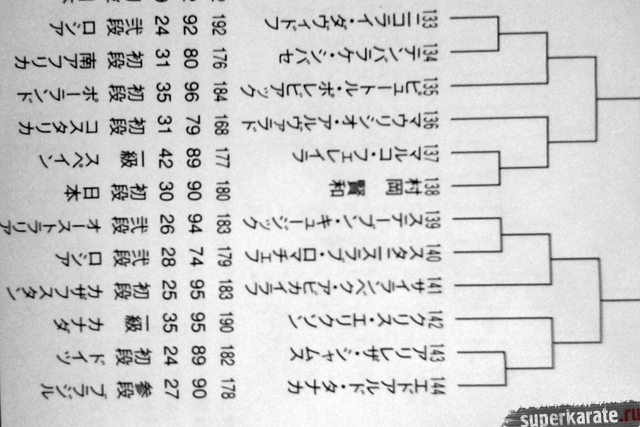 133 ニコライ・ダヴィドフ 192 92 24 弐段 ロシア
134 テンバラケ・シバセ 176 80 31 初段 南アフリカ
135 ピョートル・ポレビアック 184 96 35 初段 ポーランド
136 マウリシオ・アルヴァラド 168 79 31 初段 コスタリカ
137 マルコ・フェレイラ 177 89 42 一級 スペイン
138 村岡 賢和 180 90 30 初段 日本
139 ステーブン・キュージック 183 94 26 弐段 オーストラリア
140 スタニスラブ・ロマチェ 179 74 28 弐段 ロシア
141 183 95 25 初段 カザフスタン
142 クリス・エリクソン 190 95 35 一級 カナダ
143 アリレザ・ジャムス 182 89 24 初段 ドイツ
144 エドアルド・タナカ 178 90 27 参段 ブラジル
superkarate.ru